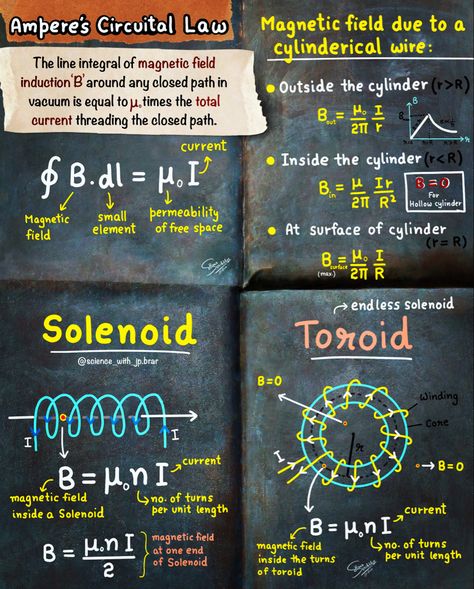 Ampere's Circuital Law
The line integral of magnetic field
induction 'B' around any closed path in
vacuum is equal to μ₀ times the total
current threading the closed path.
current
∮ B.dl = μ₀I
Magnetic
field
small
element
permeability
of free space
Magnetic field due to a
cylinderical wire:
• Outside the cylinder (r>R)
B out = μ₀/2π I/r
B
r
• Inside the cylinder (r<R)
B in = μ/2π Ir/R²
B=0
For
Hollow cylinder
• At surface of cylinder
(r=R)
B surface (max.) = μ₀/2π I/R
Solenoid
@science_with_jp.brar
I
I
B = μ₀nI
current
magnetic field
inside a Solenoid
no. of turns
per unit length
B = μ₀nI/2
magnetic field
at one end
of Solenoid
endless solenoid
Toroid
B=0
Winding
Core
r
I
I
B=0
B = μ₀nI
current
magnetic field
inside the turns
of toroid
no. of turns
per unit length